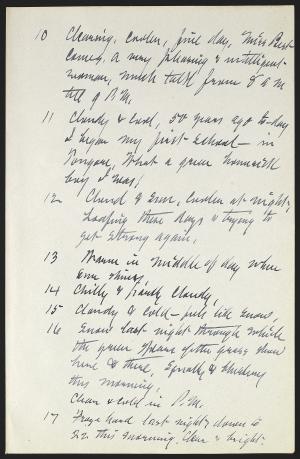 10 Clearing, cooler, fine day, Miss Best
comes, a very pleasing & intelligent
woman, much talk from 8 a m
till 9 P.M.
11 Cloudy & cool, 50 years ago to-day
I began my first school — in
Tongore, What a green homesick
boy I was!
12 Cloud & sun, cooler at night,
Loafing these days & trying to
get strong again,
13 Warm in middle of day when
sun shines,
14 Chilly & partly cloudy,
15 Cloudy & cold — felt like snow,
16 Snow last night through which
the green of the grass shows
here & there, Squally &
this morning,
Clear & cold in P.M.
17 Froze hard last night, down to
22 this morning. Clear & bright.